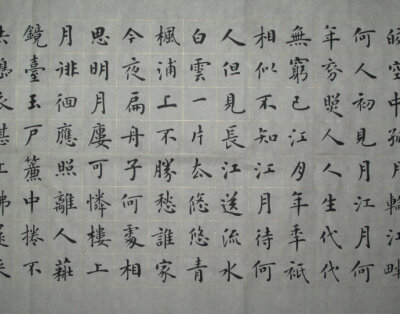 皎空中孤月輪江畔
何人初見月江月何
年初照人人生代代
無窮已江月年年祇
相似不知江月待何
人但見長江送流水
白雲一片去悠悠青
楓浦上不勝愁誰家
今夜扁舟子何處相
思明月樓可憐樓上
月徘徊應照離人妝
鏡臺玉戶簾中捲不
去擣衣砧上拂還來